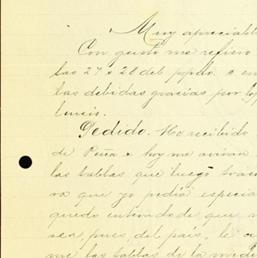 Muy apreciabl
Con gusto me refiero
las 27 y 28 del ppdo. a
las debidas gracias por
Pedido. He recibido
de Peña e hoy me avisan
las tablas que luego
ra que yo pedia especia
quedo enterado de que
sea pues del país, le
me las tablas de la medi